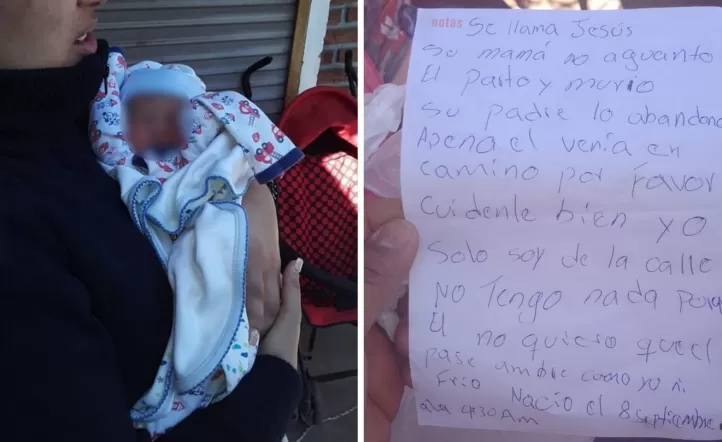 notas Se llama Jesús
Su mamá no aguanto
El parto y murio
Su padre lo abandono
Apena el venia en
camino por Favor
Cuidenle bien yo
Solo soy de la calle
NO Tengo nada para
El no quieso que el
pase ambre como yo ni
Frio Nacio el 8 septiembre
a la 4:30 Am